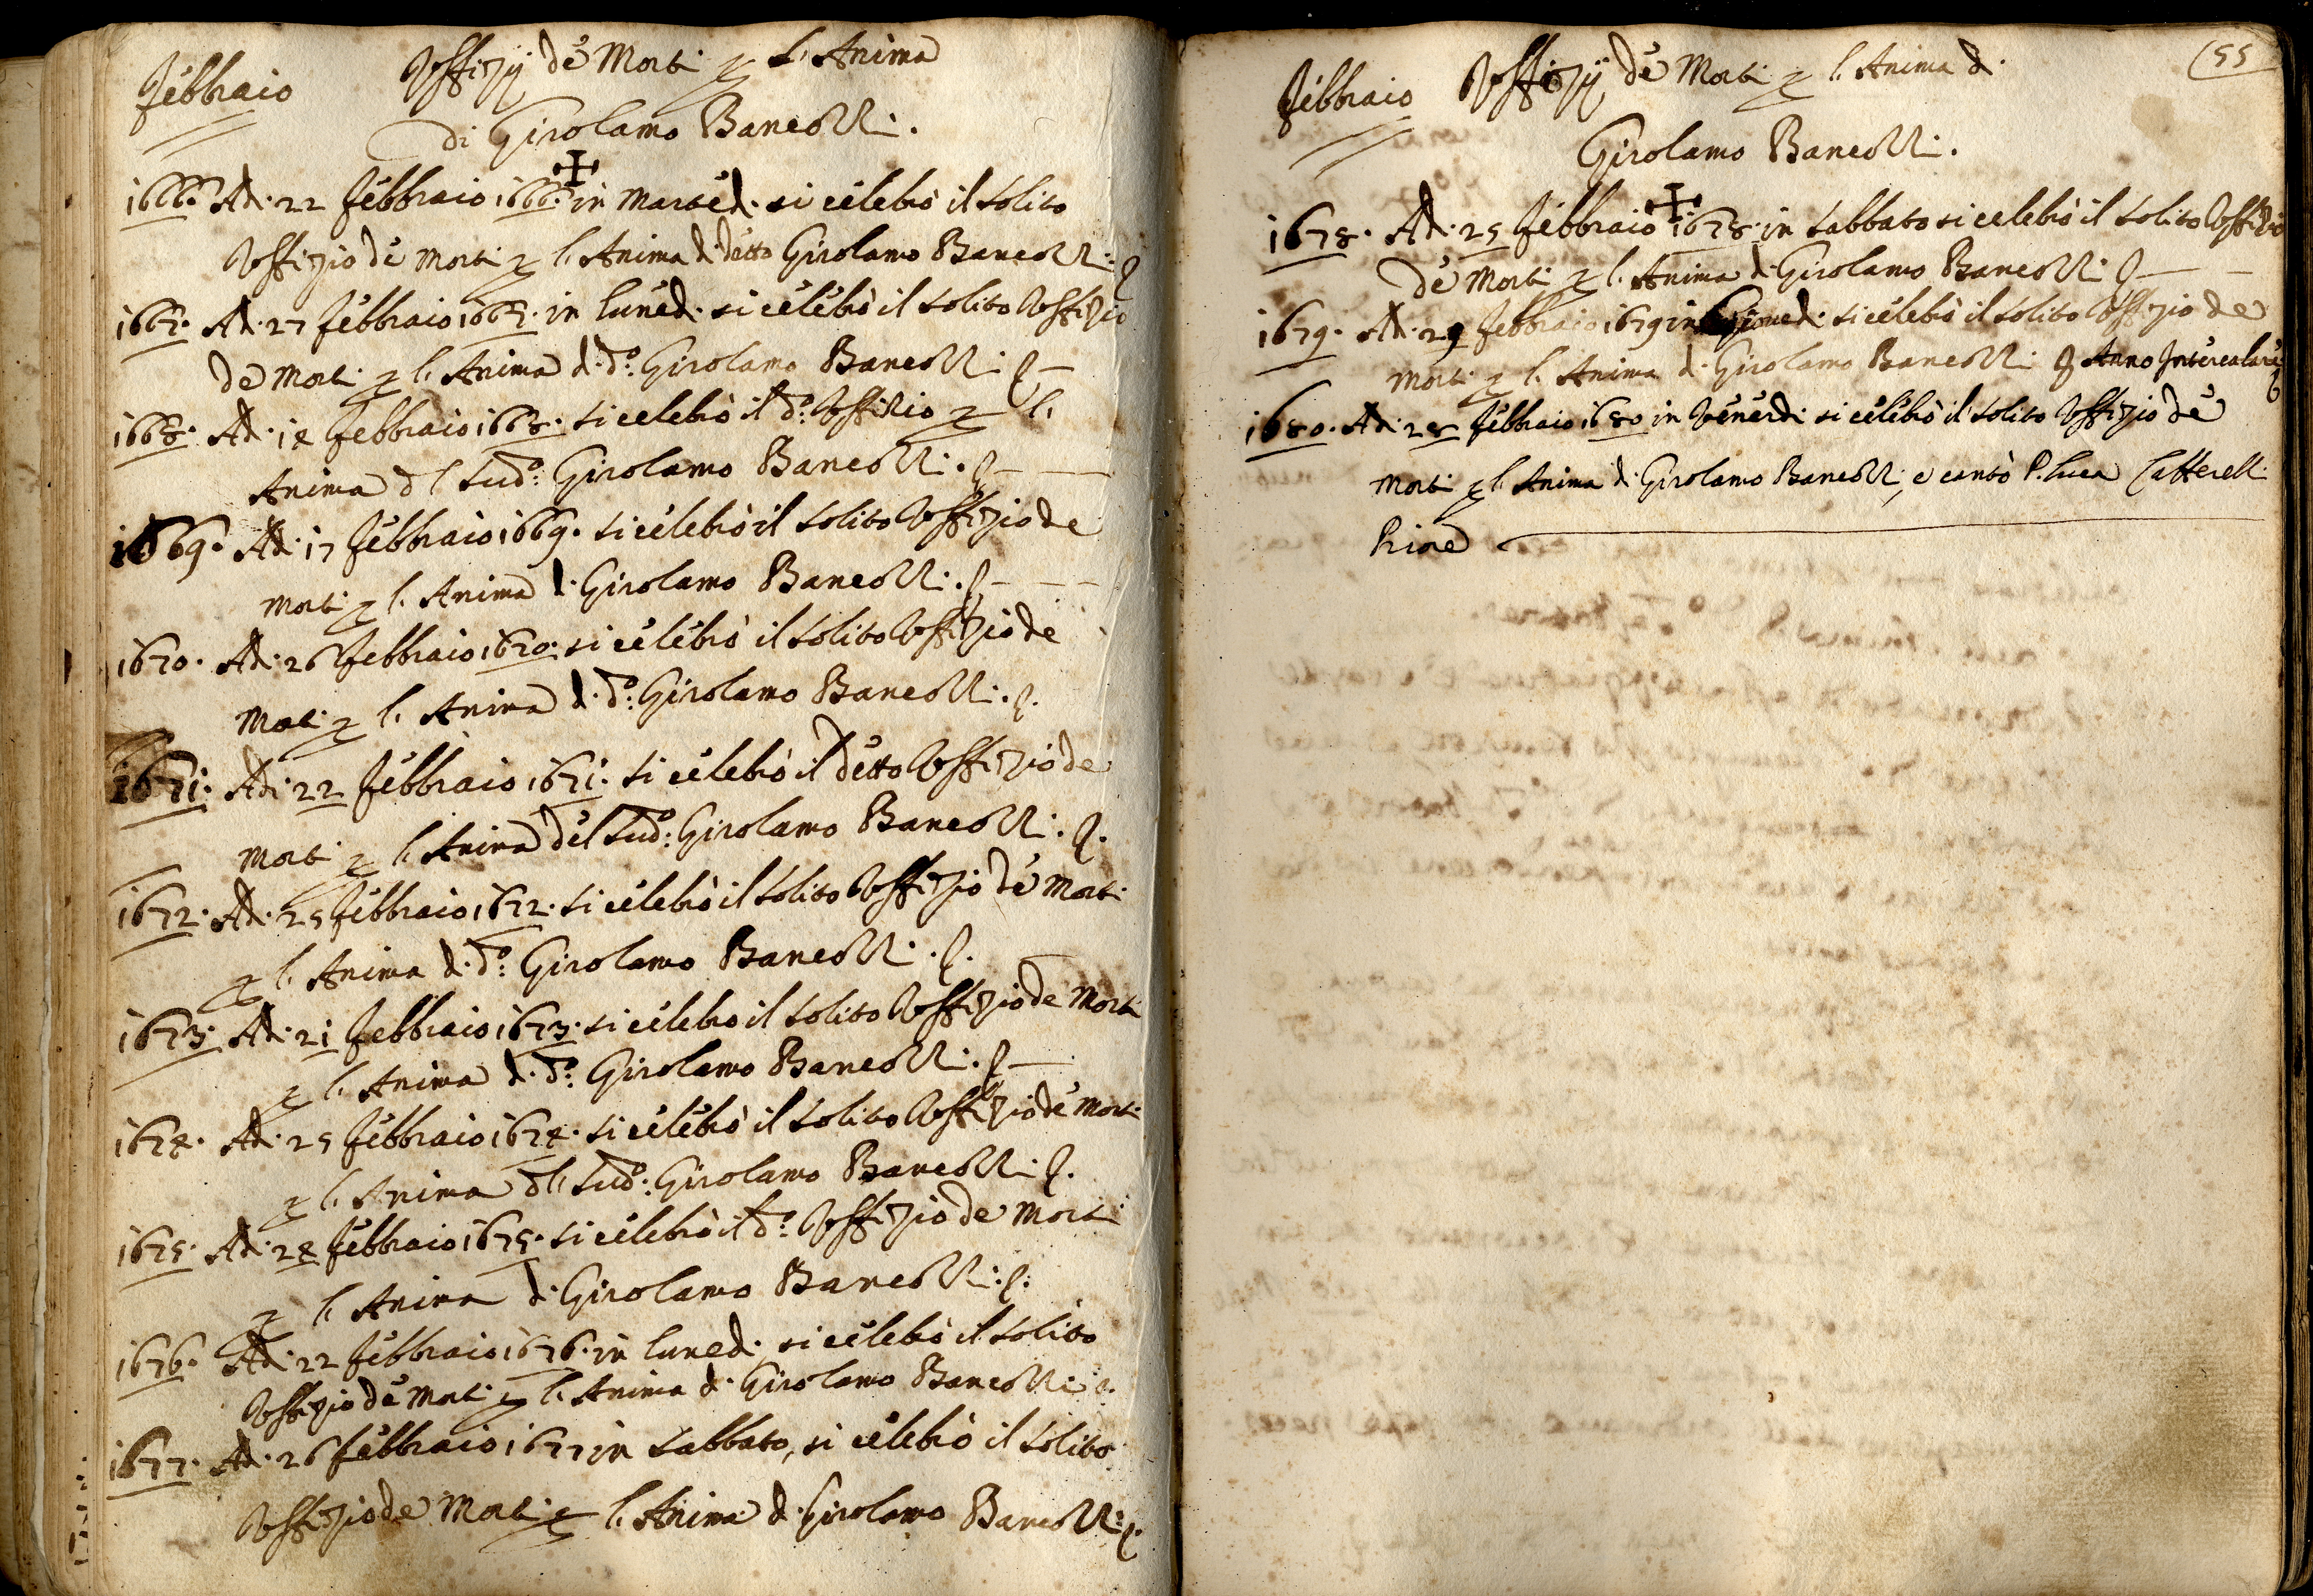 Febbraio Uffizij de Morti p l'Anima
di Girolamo Bancolli.
1666. Ad. 22 Febbraio 1666. in Marted. si celebrò il solito
Uffizio de Morti p l'Anima d. detto Girolamo Bancolli.
1667. Ad. 27 Febbraio 1667. in luned. si celebrò il solito Uffizio
de Morti p l'Anima d. do. Girolamo Bancolli.
1668. Ad. 14 Febbraio 1668. si celebrò il do. Uffizio p l'
Anima dl sudo. Girolamo Bancolli.
1669. Ad. 17 Febbraio 1669. si celebrò il solito Uffizio de
Morti p l'Anima d. Girolamo Bancolli.
1670. Ad. 26 Febbraio 1670. si celebrò il solito Uffizio de
Morti p l'Anima d. do. Girolamo Bancolli.
1671. Adi. 22 Febbraio 1671. si celebrò il detto Uffizio de
Morti p l'Anima del sudo. Girolamo Bancolli.
1672. Ad. 25 Febbraio 1672. si celebrò il solito Uffizio de Morti
p l'Anima d. do. Girolamo Bancolli.
1673. Ad. 21 Febbraio 1673. si celebrò il solito Uffizio de Morti
p l'Anima d. do. Girolamo Bancolli.
1674. Ad. 25 Febbraio 1674. si celebrò il solito Uffizio de Morti
p l'Anima dl sudo. Girolamo Bancolli.
1675. Ad. 24 Febbraio 1675. si celebrò il do. Uffizio de Morti
p l'Anima d. Girolamo Bancolli.
1676. Ad. 22 Febbraio 1676. in luned. si celebrò il solito
Uffizio de Morti p l'Anima d. Girolamo Bancolli.
1677. Ad. 26 Febbraio 1677 in sabbato, si celebrò il solito
Uffizio de Morti p l'Anima d. Girolamo Bancolli.
55
Febbraio Uffizij de Morti p l'Anima d.
Girolamo Bancolli.
1678. Ad. 25 Febbraio 1678. in sabbato si celebrò il solito Uffizio
de Morti p l'Anima d. Girolamo Bancolli.
1679. Ad. 29 Febbraio 1679 in Giovedi si celebrò il solito Uffizio de
Morti p l'Anima d. Girolamo Bancolli Anno Intercalare
1680. Ad. 28 Febbraio 1680 in Venerdi si celebrò il solito Uffizio de
Morti p l'Anima d. Girolamo Bancolli, e cantò P. Luca
Priore